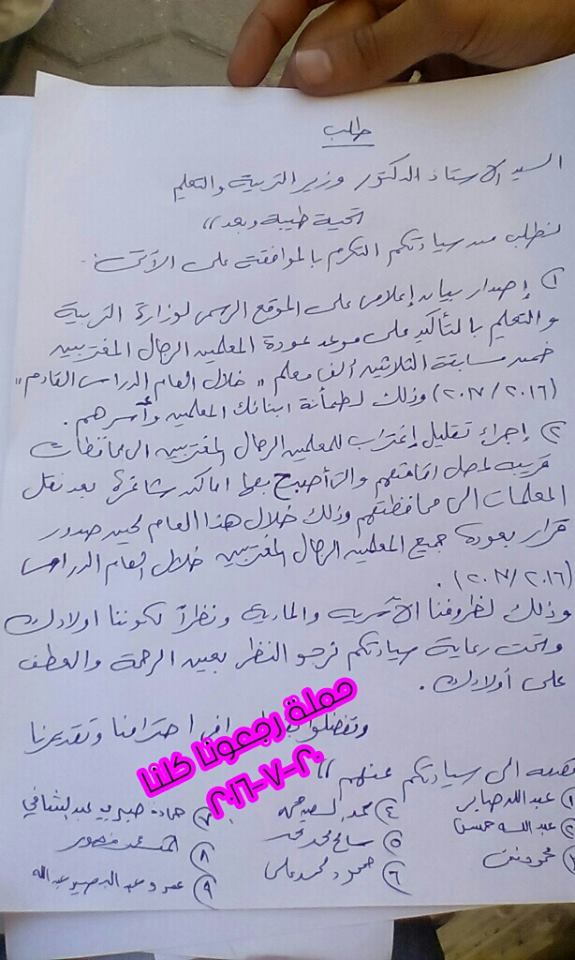 طلب
السيد الاستاذ الدكتور وزير التربية والتعليم
تحية طيبة وبعد ,,
نطلب من سيادتكم التكرم بالموافقة على الآتى :-
① إصدار بيان إعلامى على الموقع الرسمى لوزارة التربية
والتعليم بالتأكيد على موعد عودة المعلمين الرجال المغتربين
ضمن مسابقة الثلاثين ألف معلم ,, خلال العام الدراسى القادم ,,
(٢٠١٦ / ٢٠١٧) وذلك لطمأنة ابنائك المعلمين وأسرهم .
② إجراء تقليل إغتراب للمعلمين الرجال المغتربين الى محافظات
قريبة لمحل اقامتهم والتى أصبح بها اماكن شاغرة بعد نقل
المعلمات الى محافظتهم وذلك خلال هذا العام لحين صدور
قرار بعودة جميع المعلمين الرجال المغتربين خلال العام الدراسى
(٢٠١٦ / ٢٠١٧) .
وذلك لظروفنا الآسرية والمادية ونظراً لكوننا اولادك
وتحت رعاية سيادتكم نرجو النظر بعين الرحمة والعطف
على أولادك .
وتفضلوا احترامنا وتقديرنا
حملة رجعونا كلنا
٢٠-٧-٢٠١٦
مقدمه الى سيادتكم عنهم ,,
① عبدالله صابر
② عبدالله حسن
محمود
④ محمد السيد
⑤ سامح محمد
⑥ محمود محمد على
⑦ حماده صبرى عبدالشافي
⑧ محمد منصور
⑨ عمرو عبدالبصير عبدالله